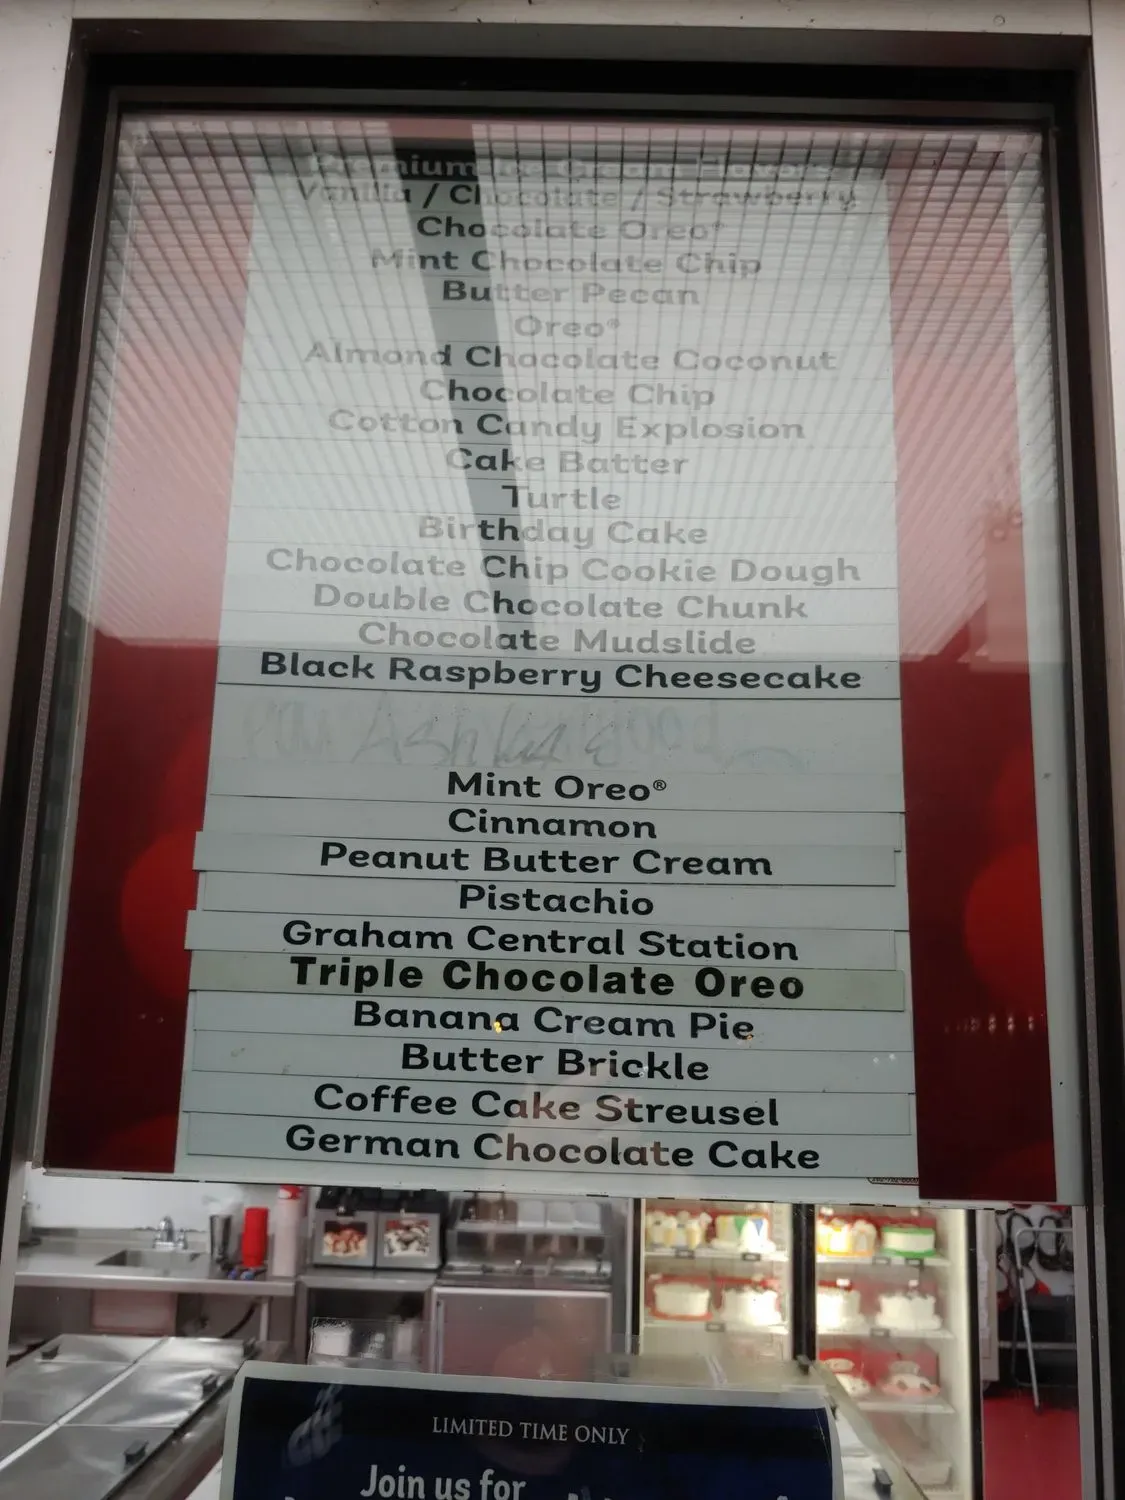 Premium Ice Cream Flavors
Vanilla / Chocolate / Strawberry
Chocolate Oreo®
Mint Chocolate Chip
Butter Pecan
Oreo®
Almond Chocolate Coconut
Chocolate Chip
Cotton Candy Explosion
Cake Batter
Turtle
Birthday Cake
Chocolate Chip Cookie Dough
Double Chocolate Chunk
Chocolate Mudslide
Black Raspberry Cheesecake
Mint Oreo®
Cinnamon
Peanut Butter Cream
Pistachio
Graham Central Station
Triple Chocolate Oreo
Banana Cream Pie
Butter Brickle
Coffee Cake Streusel
German Chocolate Cake
LIMITED TIME ONLY
Join us for